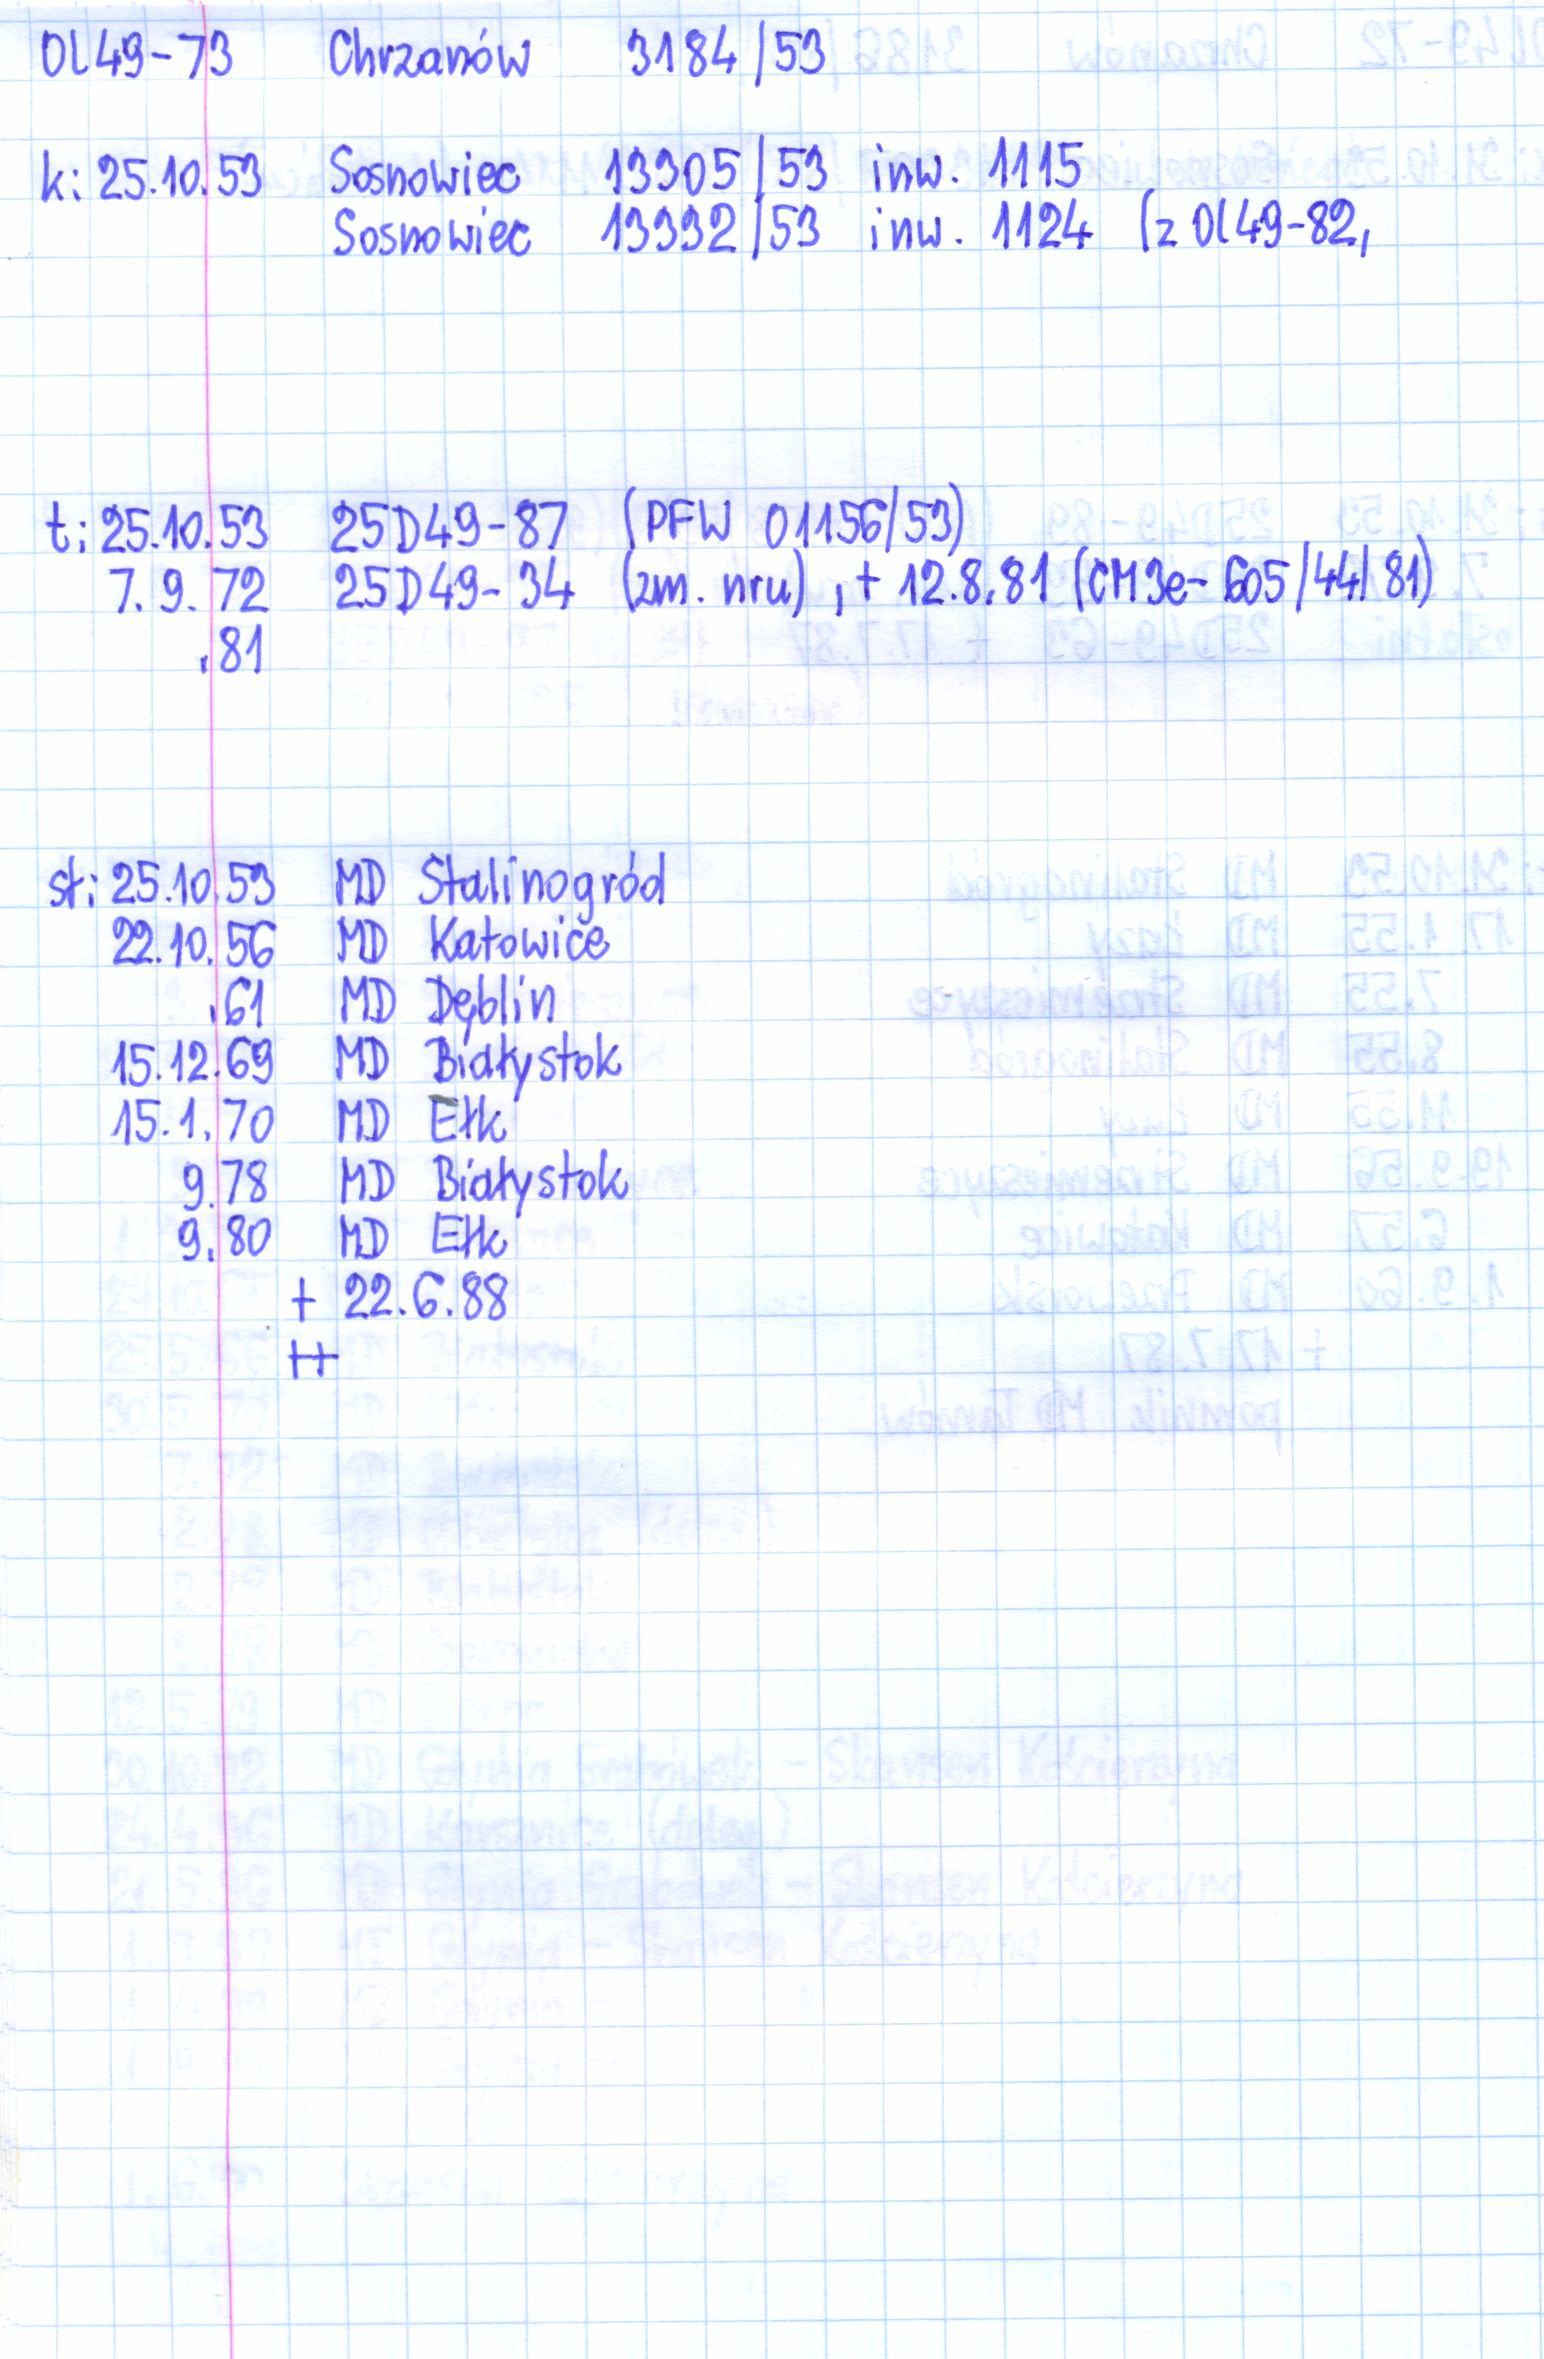 Ol49-73 Chrzanów 3184/53
k: 25.10.53 Sosnowiec 13305/53 inw. 1115
Sosnowiec 13332/53 inw. 1124 (z Ol49-82,
t: 25.10.53 25D49-87 (PFW 01156/53)
7.9.72 25D49-34 (zm. nru), + 12.8.81 (CM3e-605/44/81)
.81
st: 25.10.53 MD Stalinogród
22.10.56 MD Katowice
.61 MD Dęblin
15.12.69 MD Białystok
15.1.70 MD Ełk
9.78 MD Białystok
9.80 MD Ełk
+ 22.6.88
++